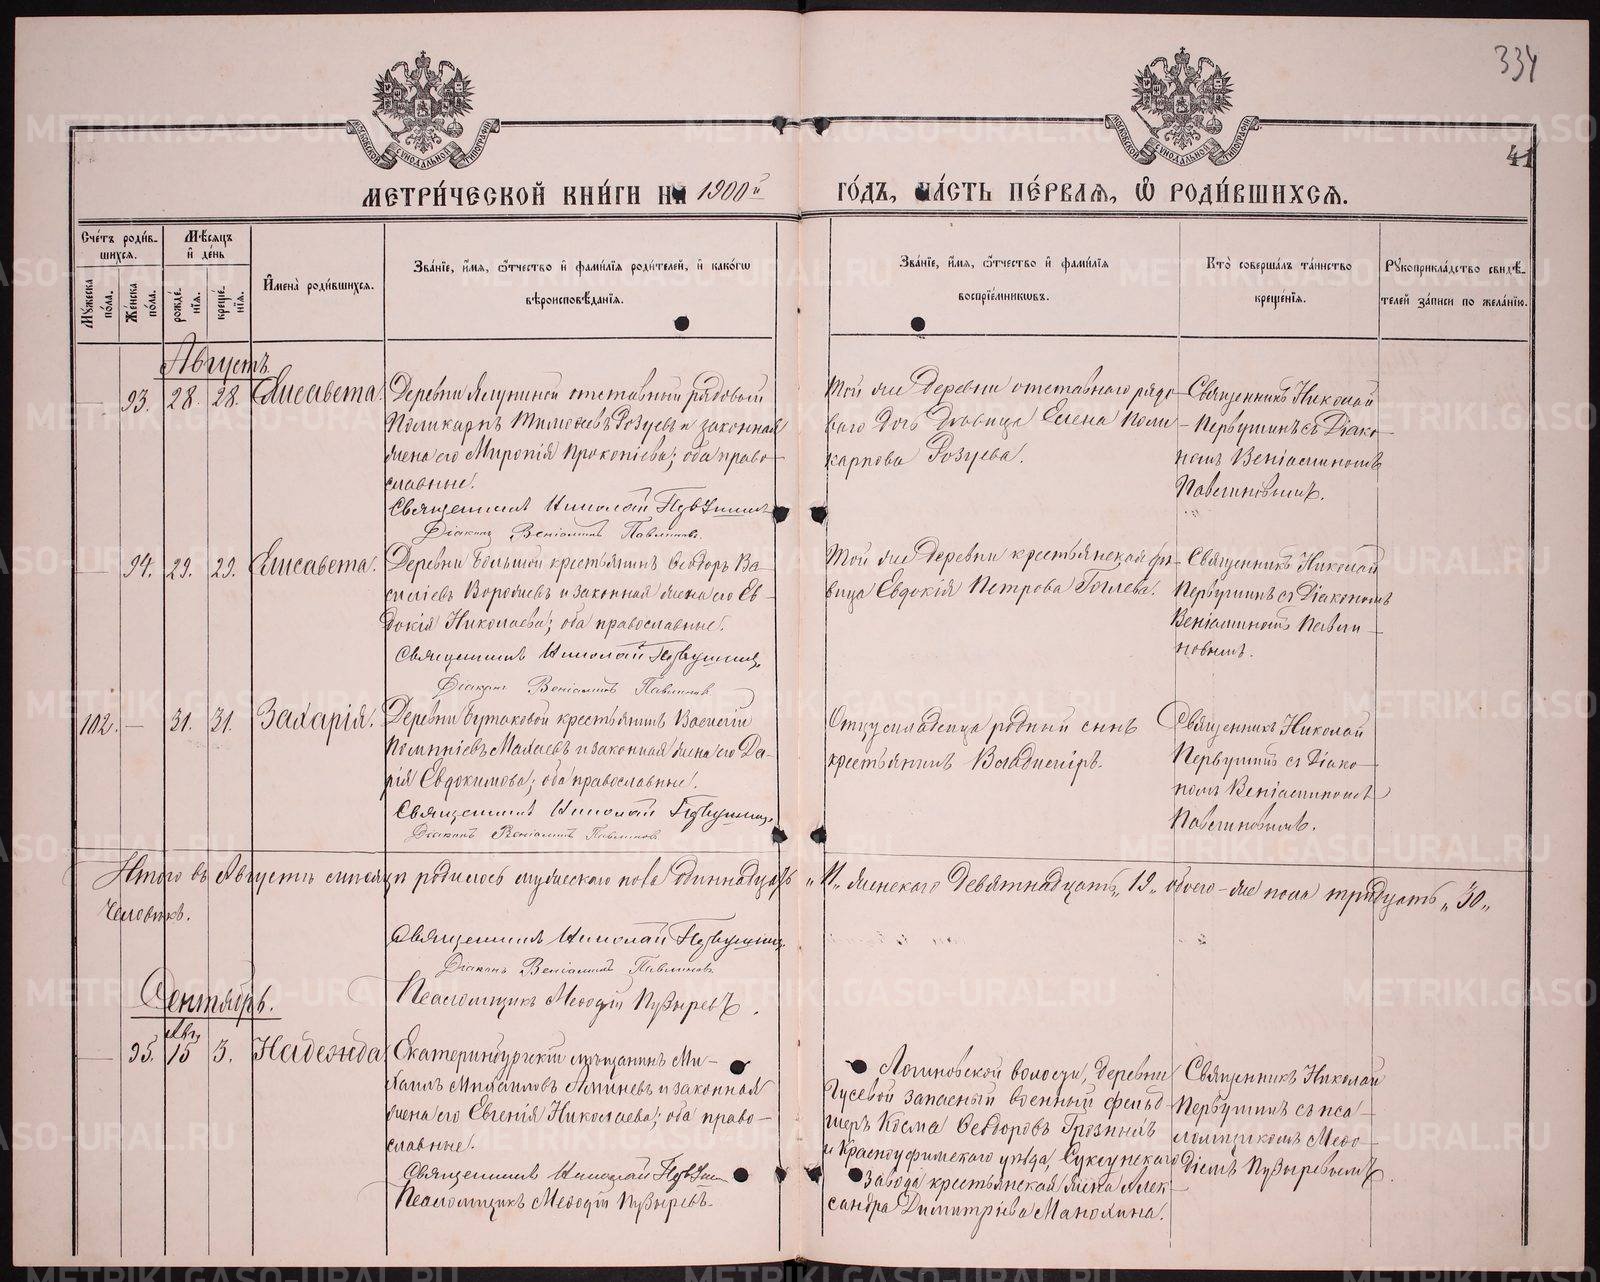 334
41
МОСКОВСКОЙ СУНОДАЛЬНОЙ ТИПОГРАФІИ
МОСКОВСКОЙ СУНОДАЛЬНОЙ ТИПОГРАФІИ
МЕТРИ́ЧЕСКОЙ КНИ́ГИ НА 1900й ГО́ДЪ, ЧА́СТЬ ПЕ́РВАЯ, Ѡ РОДИ́ВШИХСЯ.
Сче́тъ роди́в-
шихся.
Му́жеска по́ла.
Же́нска по́ла.
Мѣ́сяцъ
и́ де́нь
рожде́нія.
креще́нія.
И҆мена̀ роди́вшихся.
Зва́ніе, и҆́мя, ѻ҆́тчество и҆ фами́лія роди́телей, и҆ како́гѡ
вѣроисповѣ́данія.
Зва́ніе, и҆́мя, ѻ҆́тчество и҆ фами́лія
воспріе́мниковъ.
Кто̀ соверша́лъ та́инство
креще́нія.
Рꙋкоприкла́дство свидѣ́-
телей за́писи по жела́нію.
Августъ.
— 93. 28. 28. Елисавета.
Деревни Ялуниной отставный рядовой
Поликарпъ Тимоѳеевъ Розуевъ и законная
жена его Миропія Прокопіева; оба право-
славные.
Священникъ Николай Первушинъ
Діаконъ Веніаминъ Павлиновъ.
Той же деревни отставнаго рядо-
ваго дочь девица Елена Поли-
карпова Розуева.
Священникъ Николай
Первушинъ съ Діако-
номъ Веніаминомъ
Павлиновымъ.
— 94. 29. 29. Елисавета.
Деревни Большой крестьянинъ Ѳеодоръ Ва-
силіевъ и законная жена его Ев-
докія Николаева; оба православные.
Священникъ Николай Первушинъ
Діаконъ Веніаминъ Павлиновъ.
Той же деревни крестьянская дѣ-
вица Евдокія Петрова
Священникъ Николай
Первушинъ съ Діакономъ
Веніаминомъ Павли-
новымъ.
102. — 31. 31. Захарія.
Деревни Бутаковой крестьянинъ Василій
Махаевъ и законная жена его Да-
рія Евдокимова; оба православные.
Священникъ Николай Первушинъ
Діаконъ Веніаминъ Павлиновъ
Отцу младенца родный сынъ
крестьянинъ Владиміръ.
Священникъ Николай
Первушинъ съ Діако-
номъ Веніаминомъ
Павлиновымъ.
Итого въ Августѣ мѣсяцѣ родилось мужескаго пола одиннадцать „11„ женскаго девятнадцать „19„ обоего-же пола тридцать „30„
человѣкъ.
Священникъ Николай Первушинъ
Діаконъ Веніаминъ Павлиновъ
Псаломщикъ Меѳодій Пузыревъ.
Сентябрь.
Авг.
— 95. 15 3. Надежда
Екатеринбургскій мѣщанинъ Ми-
хаилъ Михаиловъ и законная
жена его Евгенія Николаева; оба право-
славные.
Священникъ Николай Первушинъ
Псаломщикъ Меѳодій Пузыревъ.
Логиновской волости, деревни
Гусевой запасный военный фельд-
шеръ Косма Ѳеодоровъ Грозныхъ
и Красноуфимскаго уѣзда, Суксунскаго
завода крестьянская жена Алек-
сандра Димитріева Манохина.
Священникъ Николай
Первушинъ съ пса-
ломщикомъ Меѳо-
діемъ Пузыревымъ.
METRIKI.GASO-URAL.RU